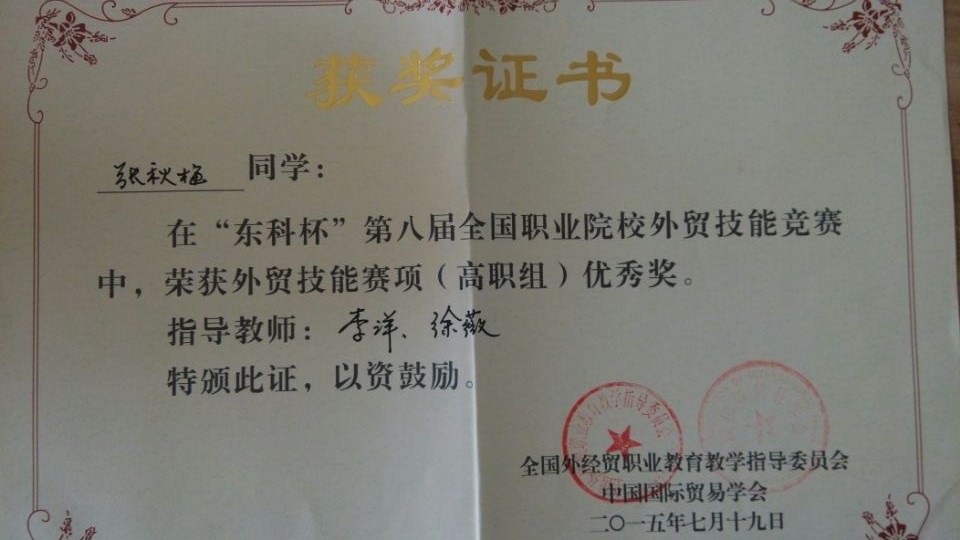 获奖证书
张秋梅 同学：
在“东科杯”第八届全国职业院校外贸技能竞赛
中，荣获外贸技能赛项（高职组）优秀奖。
指导教师：李洋、徐薇
特颁此证，以资鼓励。
全国外经贸职业教育教学指导委员会
中国国际贸易学会
二〇一五年七月十九日